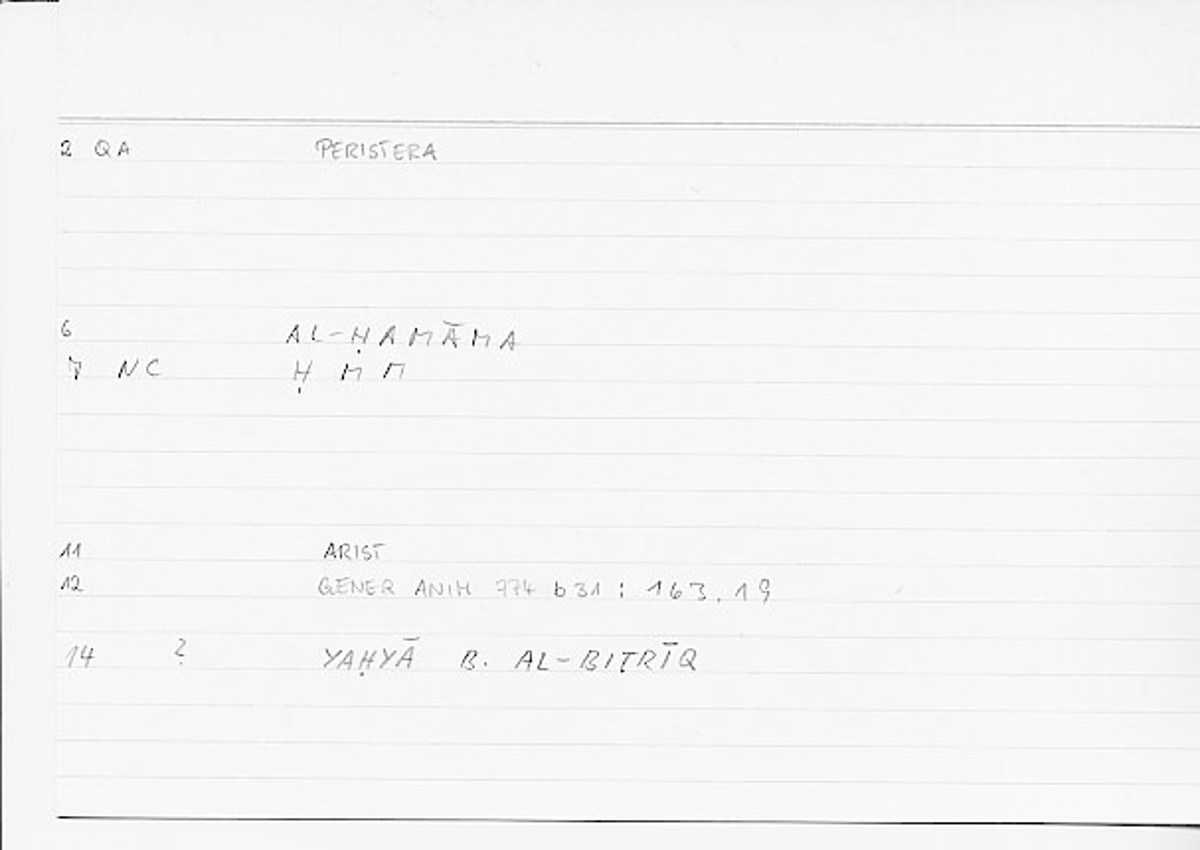 2 QA PERISTERA
6 AL-ḤAMĀMA
7 NC Ḥ M M
11 ARIST
12 GENER ANIM 774 b 31 : 163.19
14 ? YAḤYĀ B. AL-BIṬRĪQ